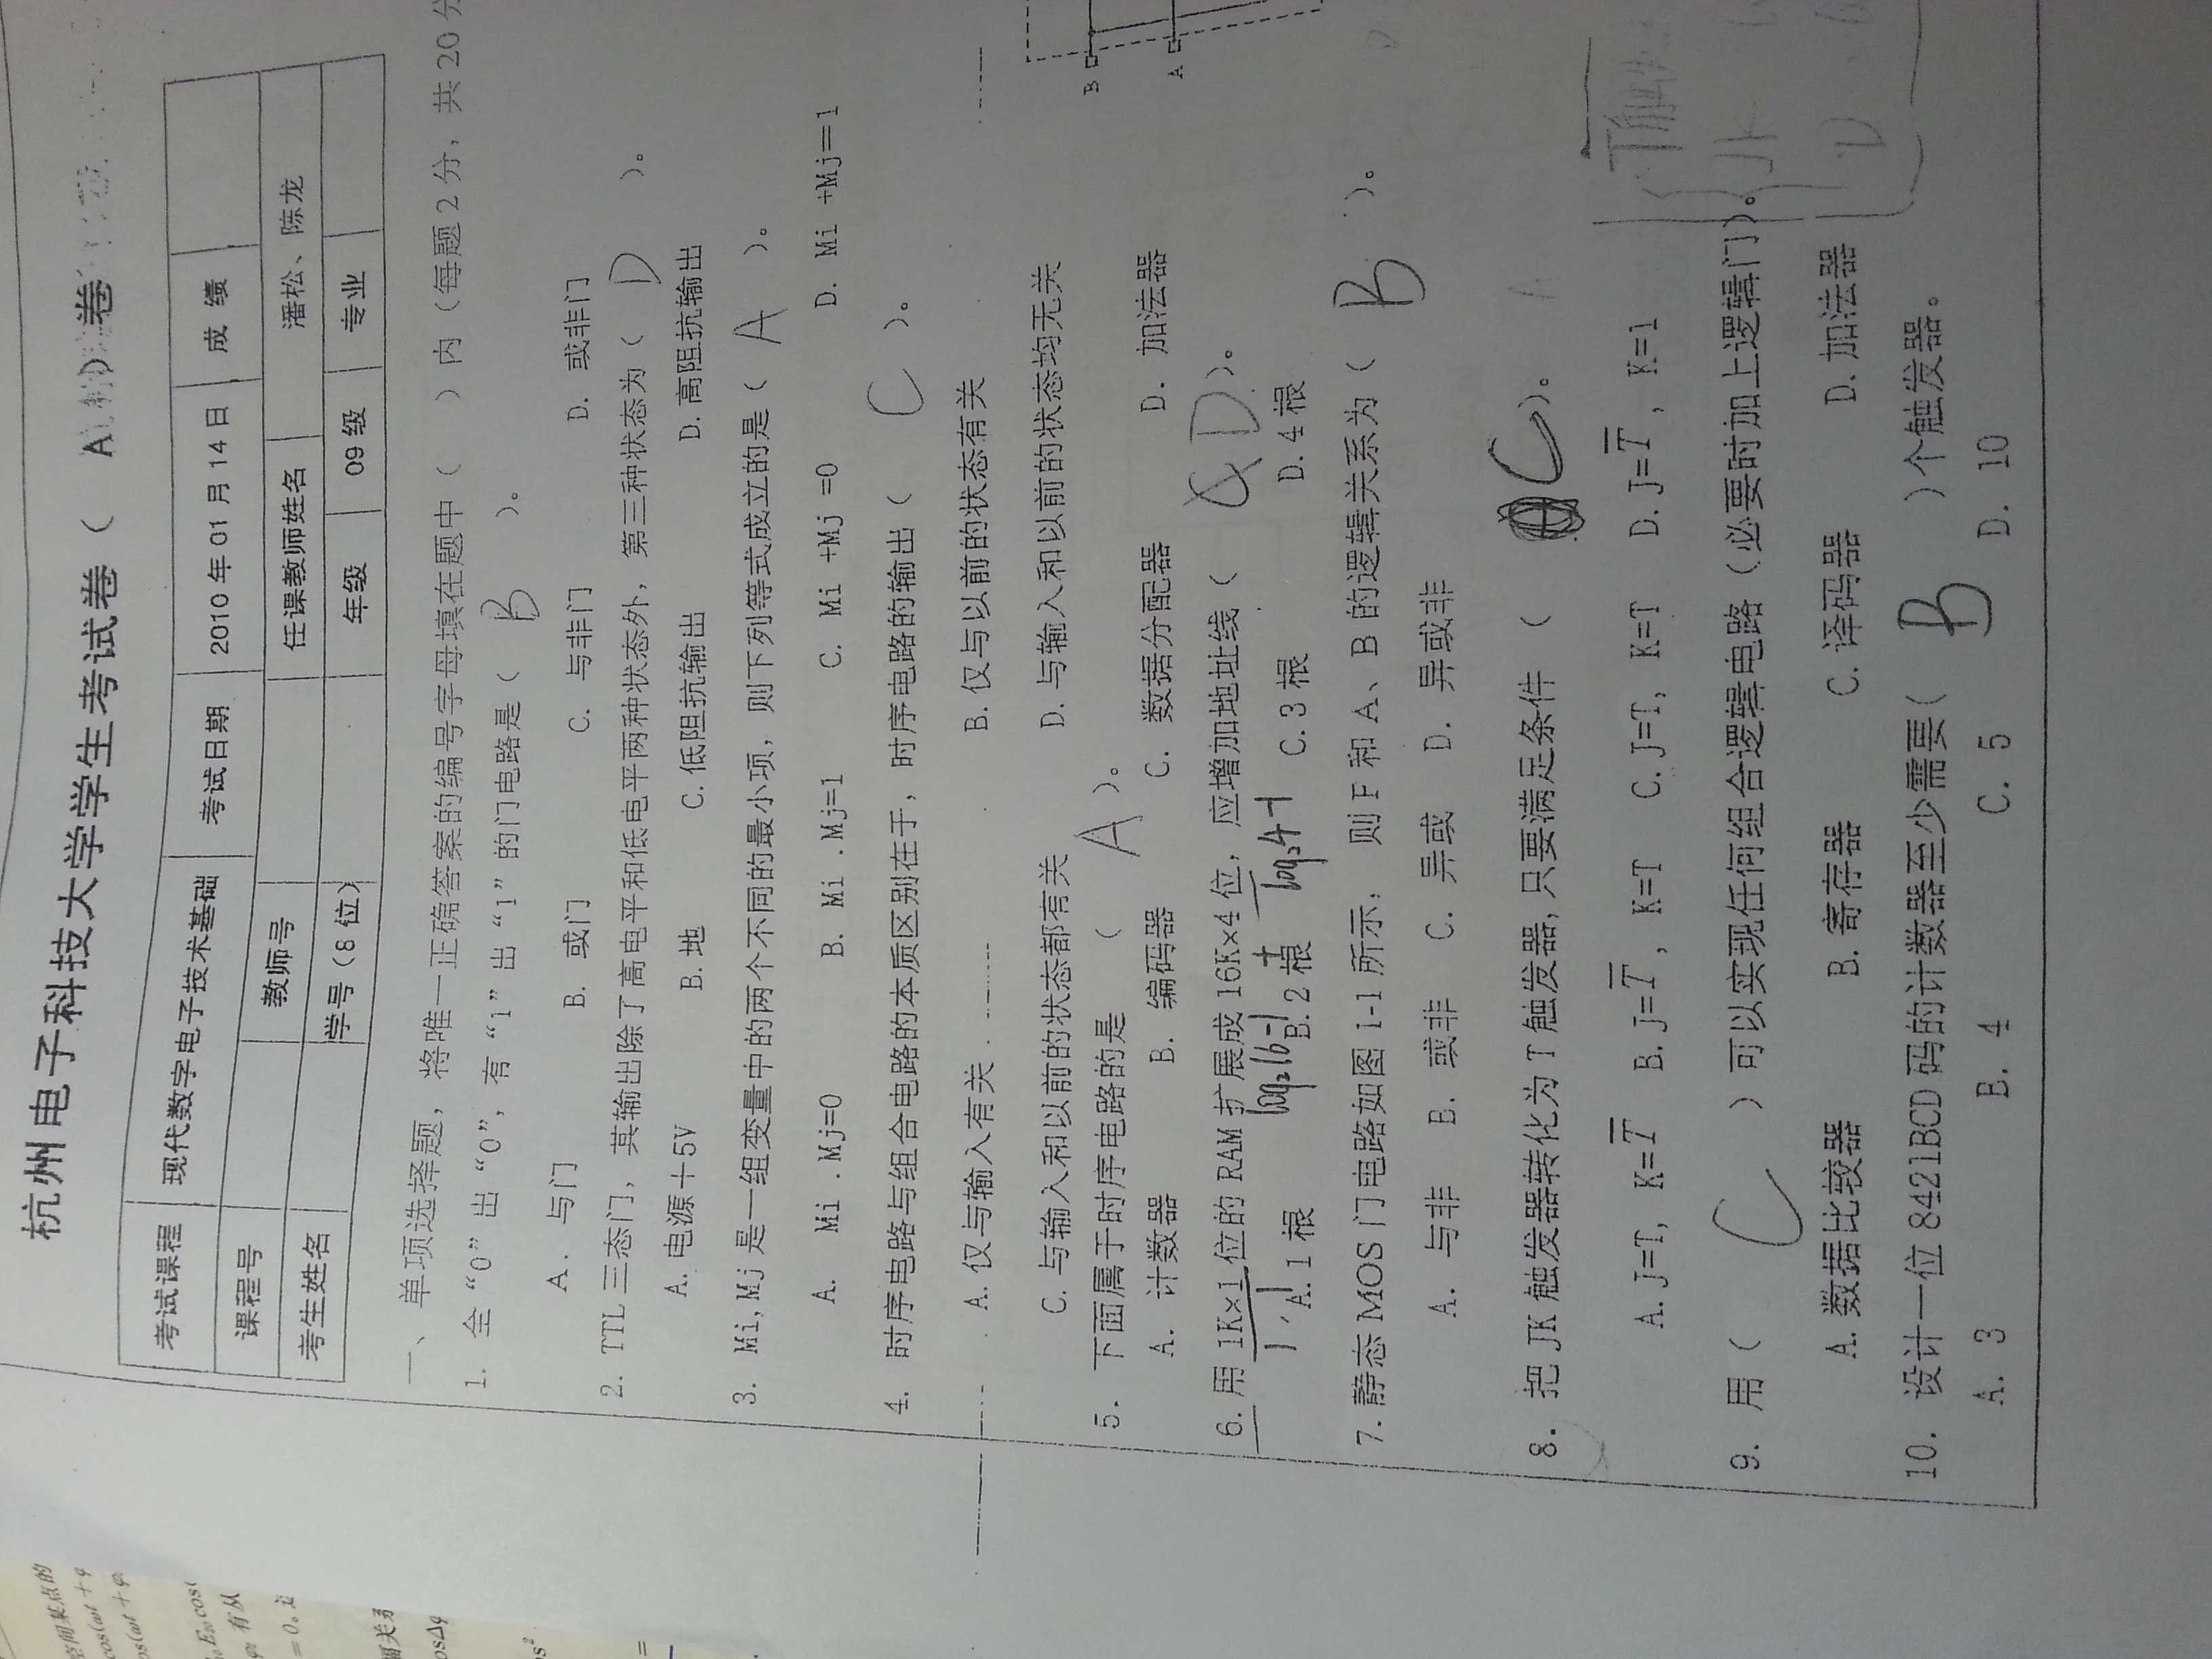 空间某点的
cos(ωt + φ
os(ωt + φ
E₂₀ cos(
φ₂ 有从
= 0。这
幅关系
osΔφ
os²
=
杭州电子科技大学学生考试卷（ A ）卷
考试课程 现代数字电子技术基础 考试日期 2010 年 01 月 14 日 成 绩
课程号 教师号 任课教师姓名 潘松、陈龙
考生姓名 学号（8 位） 年级 09 级 专业
一、单项选择题，将唯一正确答案的编号字母填在题中（ ）内（每题 2 分，共 20 分
1. 全“0”出“0”，有“1”出“1”的门电路是（ B ）。
A. 与门 B. 或门 C. 与非门 D. 或非门
2. TTL 三态门，其输出除了高电平和低电平两种状态外，第三种状态为（ D ）。
A. 电源＋5V B. 地 C. 低阻抗输出 D. 高阻抗输出
3. Mi,Mj 是一组变量中的两个不同的最小项，则下列等式成立的是（ A ）。
A. Mi .Mj=0 B. Mi .Mj=1 C. Mi +Mj =0 D. Mi +Mj＝1
4. 时序电路与组合电路的本质区别在于，时序电路的输出（ C ）。
A. 仅与输入有关 B. 仅与以前的状态有关
C. 与输入和以前的状态都有关 D. 与输入和以前的状态均无关
B
5. 下面属于时序电路的是 （ A ）。
A. 计数器 B. 编码器 C. 数据分配器 D. 加法器
A
6. 用 1K×1 位的 RAM 扩展成 16K×4 位，应增加地址线（ D ）。
1 1 log₂16-1 + log₂4-1
A. 1 根 B. 2 根 C. 3 根 D. 4 根
7. 静态 MOS 门电路如图 1-1 所示， 则 F 和 A、B 的逻辑关系为（ B ）。
A. 与非 B. 或非 C. 异或 D. 异或非
8. 把 JK 触发器转化为 T 触发器,只要满足条件 （ C ）。 A
A. J=T, K=T̅ B. J=T̅ , K=T C. J=T, K=T D. J=T̅ , K=1
9. 用（ C ）可以实现任何组合逻辑电路（必要时加上逻辑门）。
JK
A. 数据比较器 B. 寄存器 C. 译码器 D. 加法器
D
10. 设计一位 8421BCD 码的计数器至少需要( B )个触发器。
A. 3 B. 4 C. 5 D. 10